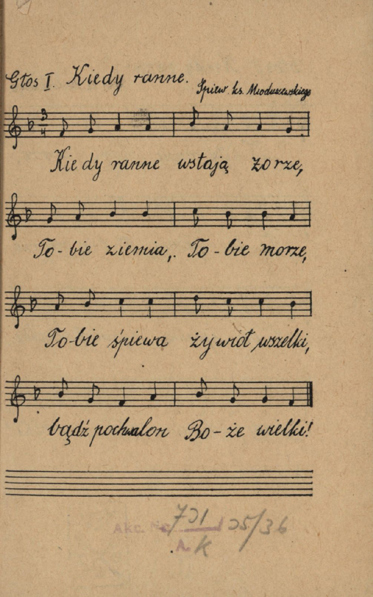 Głos I. Kiedy ranne.
Śpiew ks. Mioduszewskiego
3
4
Kiedy ranne wstają zorze,
To-bie ziemia, To-bie morze,
To-bie śpiewa żywioł wszelki,
bądź pochwalon Bo-że wielki!
Akc. No 731 35/36
K